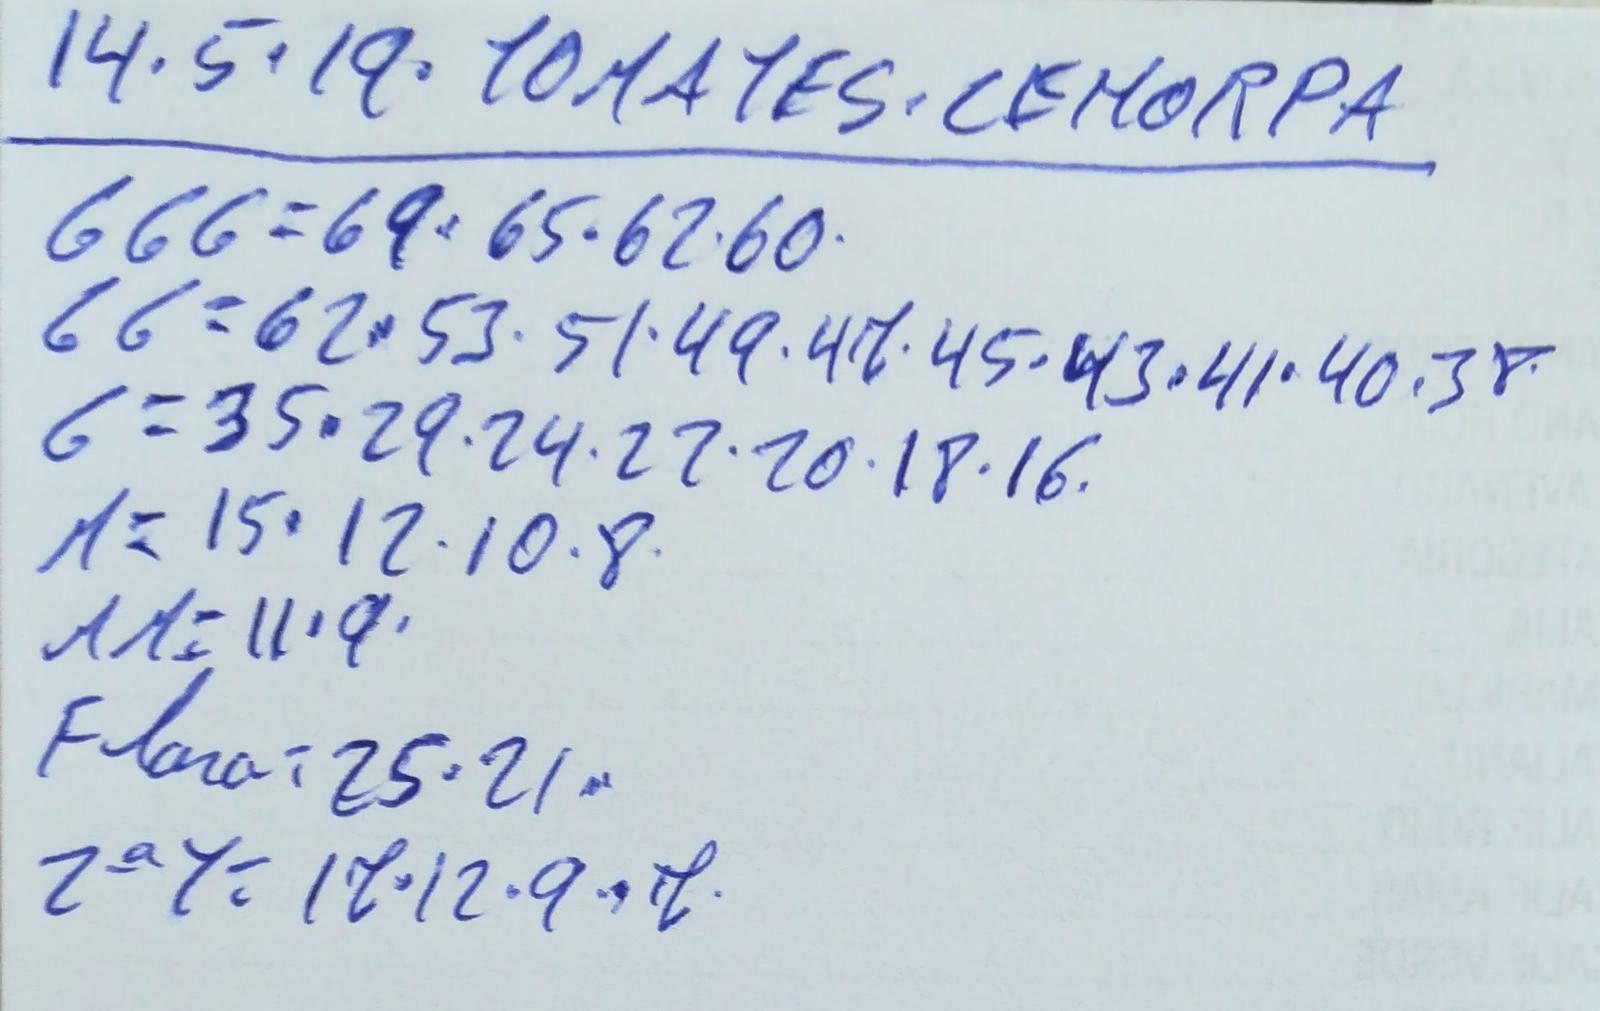 14.5.19. TOMATES. CEHORPA
GGG=69.65.62.60.
GG=62.53.51.49.47.45.43.41.40.38.
G=35.29.24.22.20.18.16.
M=15.12.10.8.
MM=11.9.
Flora=25.21.
2ªT=17.12.9.7.